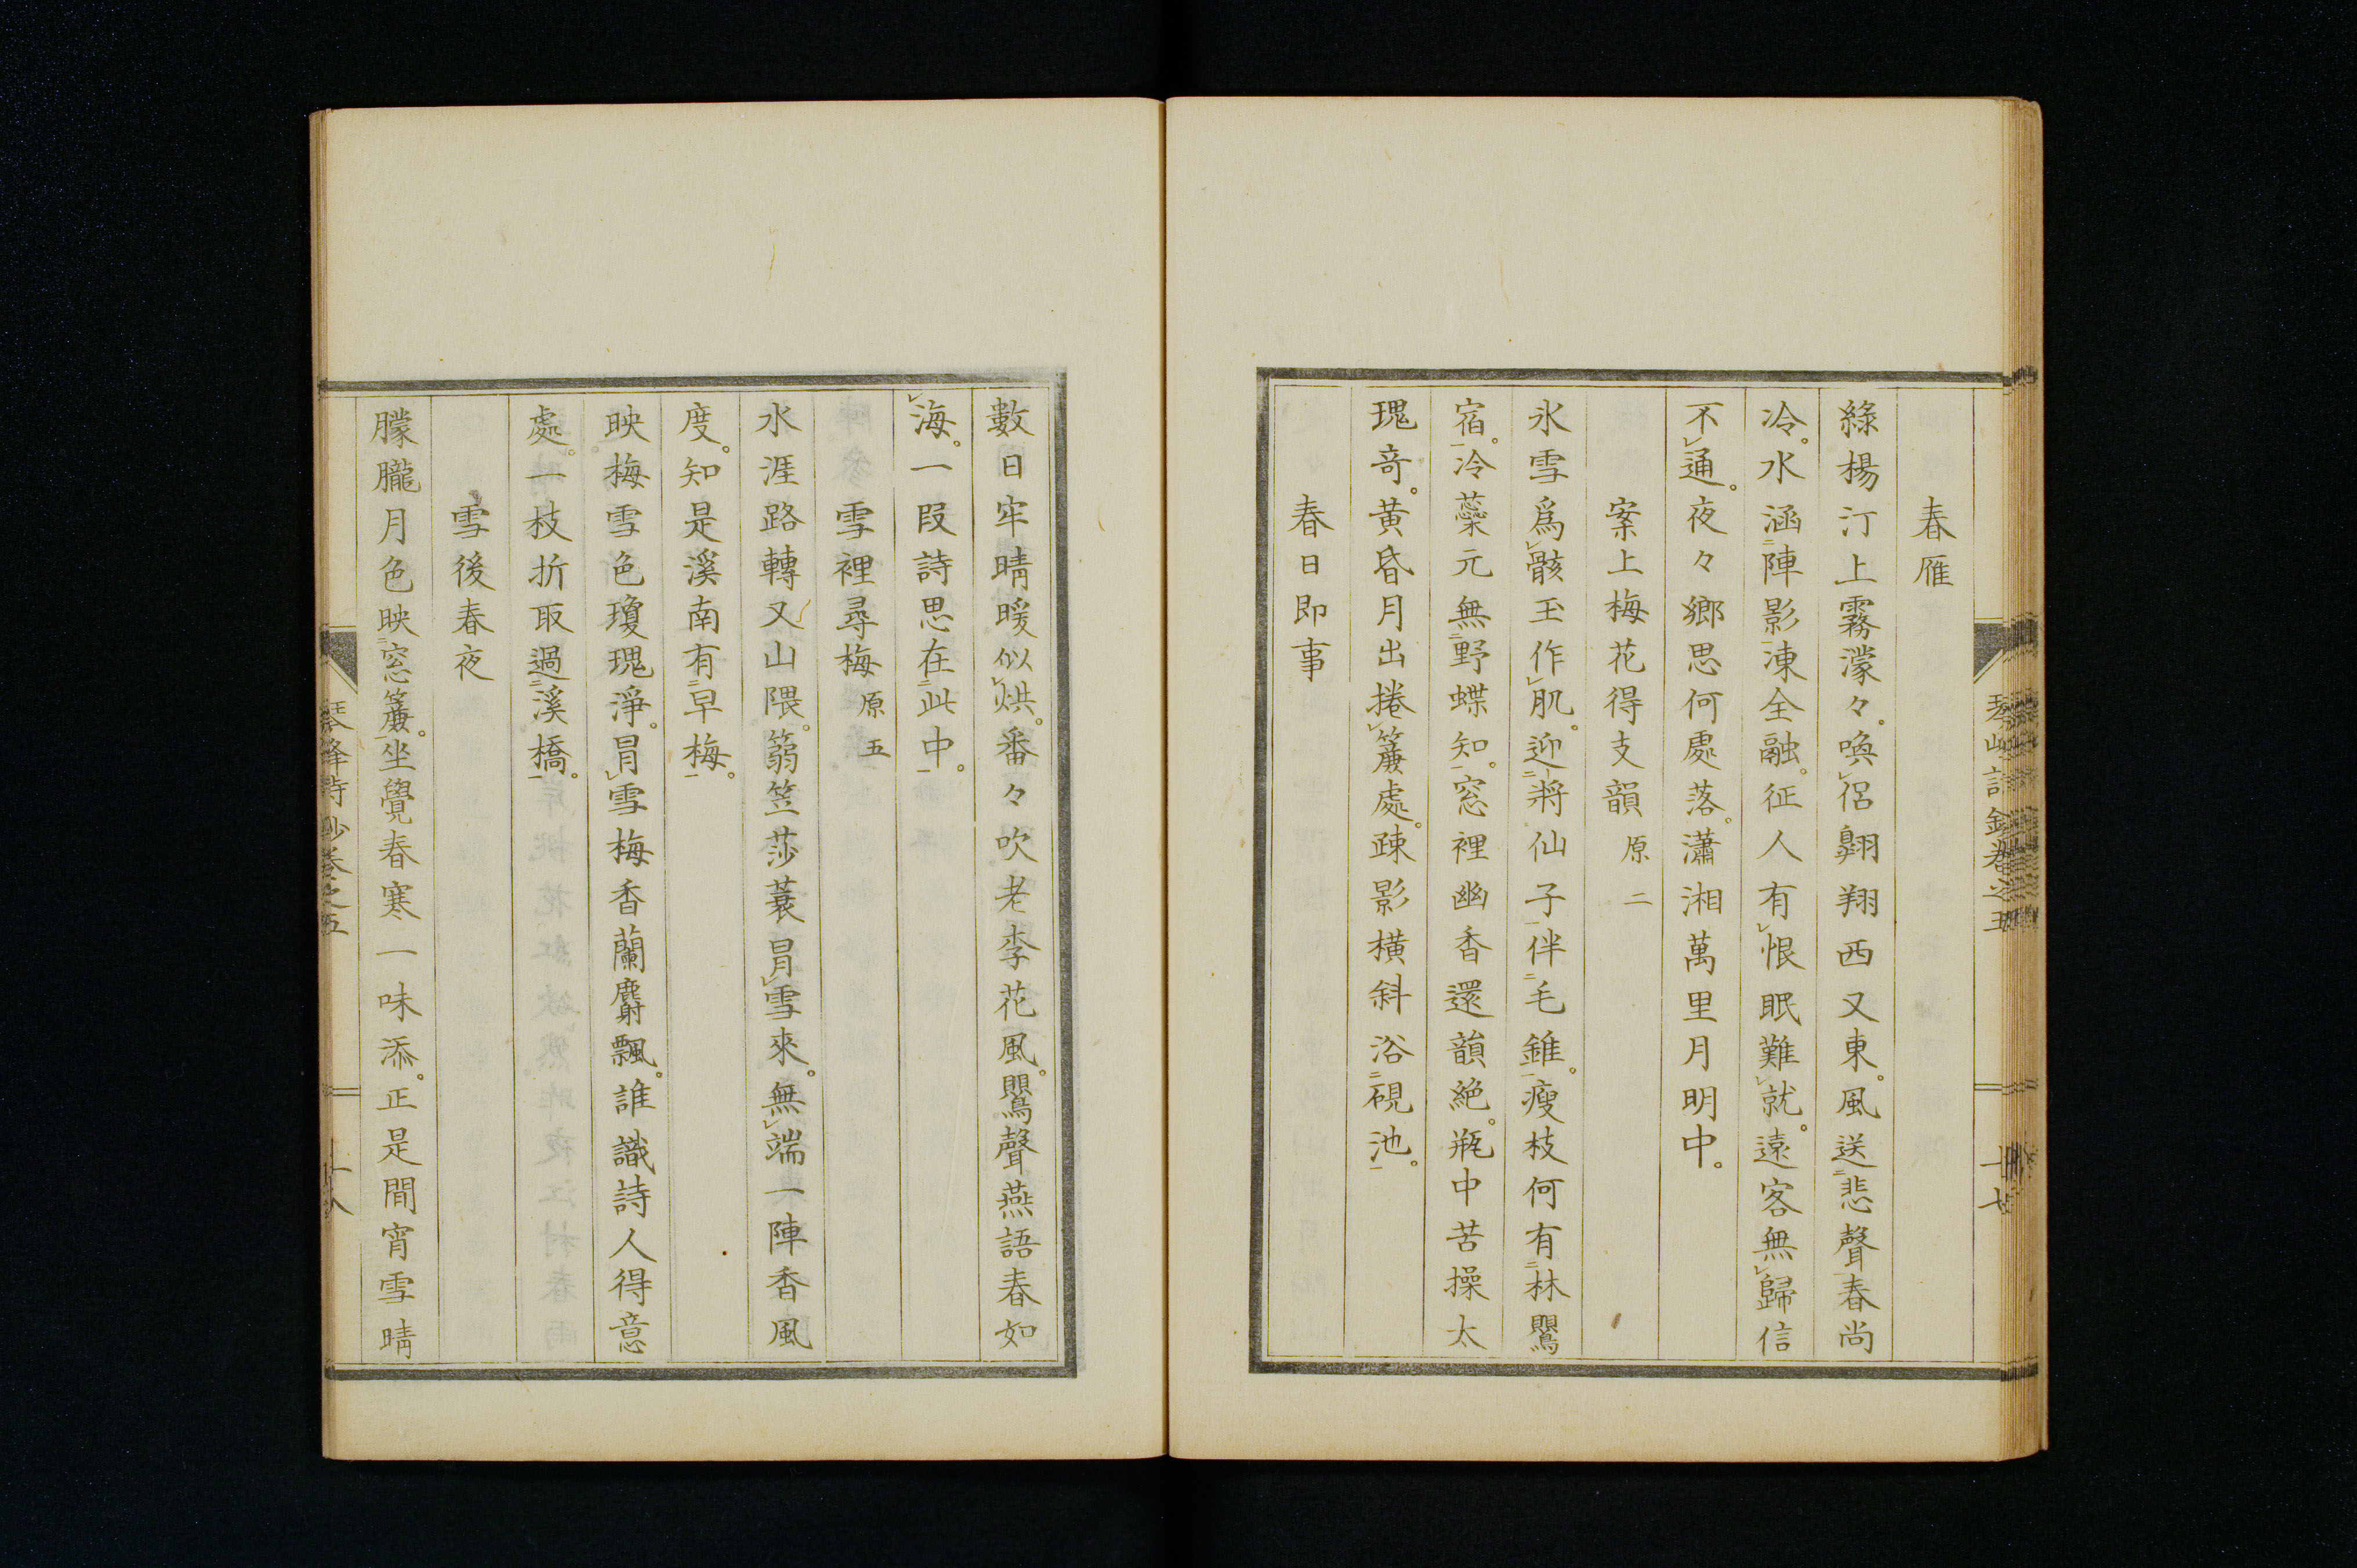 春雁
綠楊汀上霧濛々。喚侶翺翔西又東。風送悲聲春尚
冷。水涵陣影凍全融。征人有恨眠難就。遠客無歸信
不通。夜々鄉思何處落。瀟湘萬里月明中。
案上梅花得支韻 原二
氷雪爲骸玉作肌。迎將仙子伴毛錐。瘦枝何有林鸎
宿。冷蘂元無野蝶知。窓裡幽香還韻絶。瓶中苦操太
瑰奇。黃昏月出捲簾處。疎影橫斜浴硯池。
春日即事
數日牢晴暖似烘。番々吹老李花風。鸎聲燕語春如
海。一段詩思在此中。
雪裡尋梅 原五
水涯路轉又山隈。篛笠莎蓑冐雪來。無端一陣香風
度。知是溪南有早梅。
映梅雪色瓊瑰淨。冐雪梅香蘭麝飄。誰識詩人得意
處。一枝折取過溪橋。
雪後春夜
朦朧月色映窓簾。坐覺春寒一味添。正是間宵雪晴
琴峰詩鈔卷之五
十八